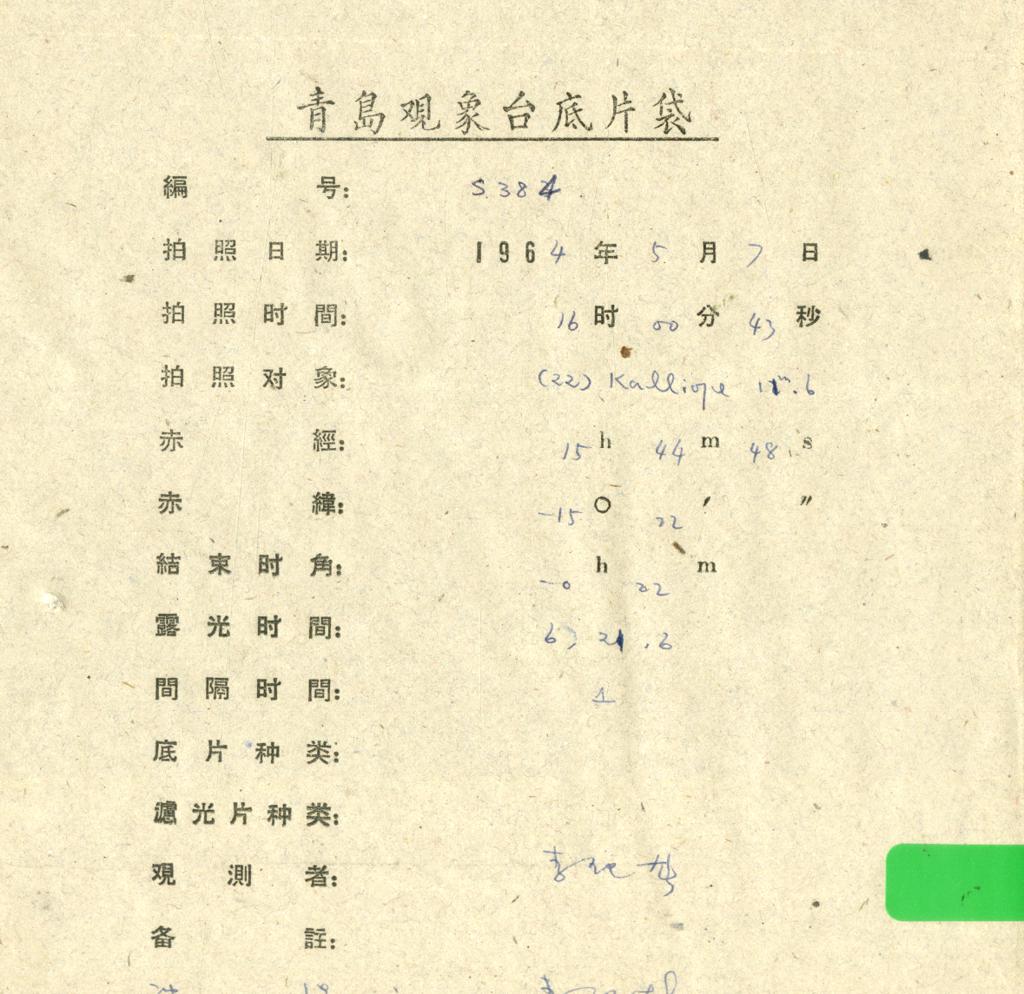 青島观象台底片袋
編号: S384
拍照日期: 1964年5月7日
拍照时間: 16时00分43秒
拍照对象: (22) Kalliope
赤經: 15h44m48s
赤緯: -15°22′ ″
結束时角: -0h22m
露光时間: 6, 21.6
間隔时間: 1
底片种类:
濾光片种类:
观測者:
备註: